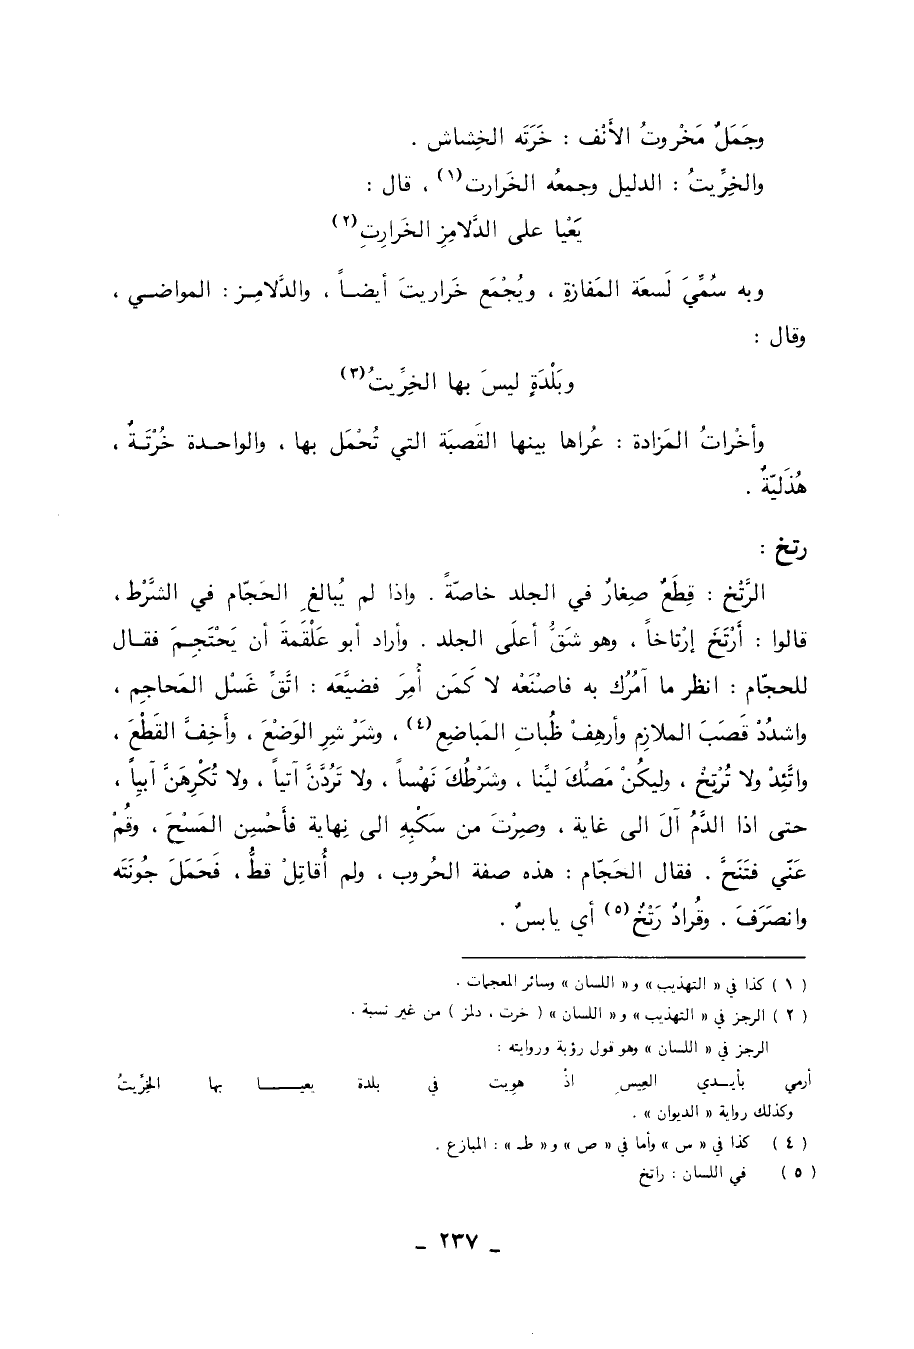 وجَمَلٌ مَخْروتُ الأَنْف : خَرَتَه الخِشاش .
والخِرِّيتُ : الدليل وجمعُه الخَرارت(١) ، قال :
يَعْيا على الدَّلامِزِ الخَرارِتِ(٢)
وبه سُمِّيَ لَسعَة المَفازةِ ، ويُجْمَع خَراريتَ أيضـاً ، والدَّلامِـز : المواضـي ،
وقال :
وبَلْدَةٍ ليسَ بها الخِرِّيتُ(٣)
وأخْراتُ المَزادة : عُراها بينها القَصبَة التي تُحْمَل بها ، والواحـدة خُرْتَـةٌ ،
هُذَليّةٌ .
رتخ :
الرَّتْخ : قِطَعٌ صِغارٌ في الجلد خاصّةً . واذا لم يُبالغِ الحَجّام في الشَّرْط ،
قالوا : أَرْتَخَ إرْتاخاً ، وهو شَقُّ أعلَى الجلد . وأراد أبو عَلْقَمةَ أن يَحْتَجِـمَ فقـال
للحجّام : انظر ما آمُرُك به فاصْنَعْه لا كَمَن أُمِرَ فضيَّعَه : اتَّقِ غَسْل المَحاجِم ،
واشدُدْ قَصَبَ الملازِم وأرهِفْ ظُباتِ المَباضِع(٤) ، وشَرْ شيرِ الوَضْعَ ، وأَخِفَّ القَطْعَ ،
واتَّئِدْ ولا تُرْتِخْ ، وليكُنْ مَصُّكَ ليِّنا ، وشَرْطُكَ نَهْساً ، ولا تَرُدَّنَّ آتياً ، ولا تُكْرِهَنَّ آبِياً ،
حتى اذا الدَّمُ آلَ الى غاية ، وصِرْتَ من سَكْبِهِ الى نِهاية فأَحْسِن المَسْحَ ، وقُمْ
عَنّي فتَنَحَّ . فقال الحَجّام : هذه صفة الحُروب ، ولم أُقاتِلْ قطُّ ، فَحَمَلَ جُونَتَه
وانصَرَفَ . وقُرادٌ رَتْخٌ(٥) أي يابسٌ .
( ١ ) كذا في « التهذيب » و« اللسان » وسائر المعجمات .
( ٢ ) الرجز في « التهذيب » و« اللسان » ( خرت ، دلمز ) من غير نسبة .
الرجز في « اللسان » وهو قول رؤبة وروايته :
أرمي بأيـدي العِيسِ اذْ هوِيت في بلدة يعيـا بها الخِرِّيتُ
وكذلك رواية « الديوان » .
( ٤ ) كذا في « س » وأما في « ص » و« ط » : المبازع .
( ٥ ) في اللسان : راتخ
ـ ٢٣٧ ـ